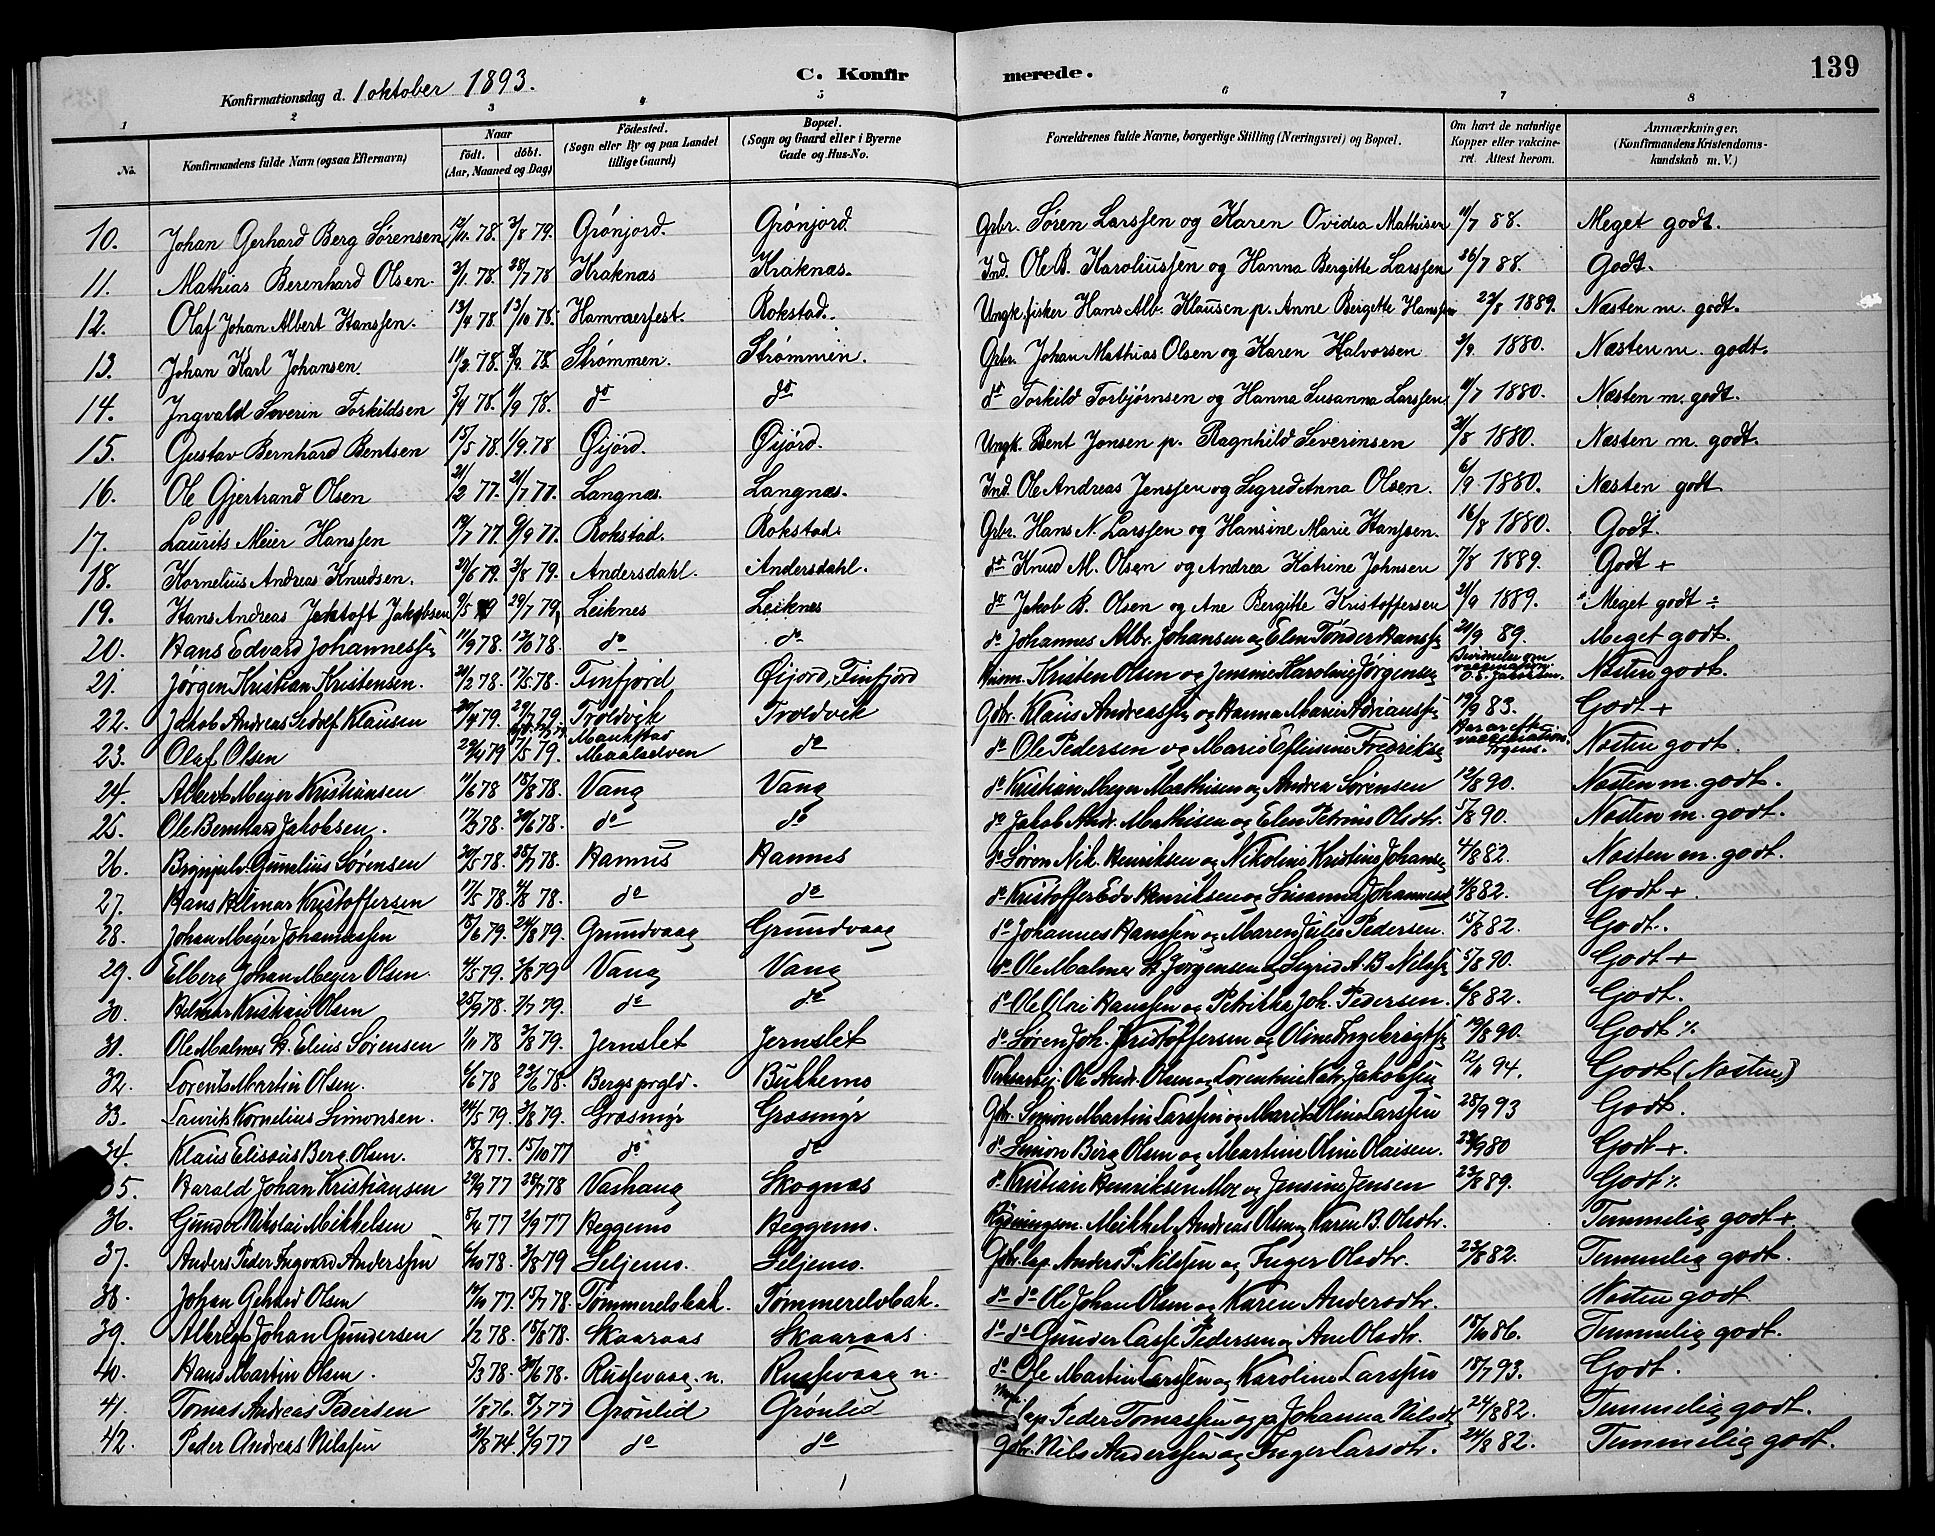 139
Konfirmationsdag d. 1 oktober 1893. C. Konfirmerede.
1 2 3 4 5 6 7 8
No. Konfirmandens fulde Navn (ogsaa Efternavn) Naar födt. döbt. (Aar, Maaned og Dag) Födested. (Sogn eller By og paa Landet tillige Gaard) Bopæl. (Sogn og Gaard eller i Byerne Gade og Hus-No. Forældrenes fulde Navne, borgerlige Stilling (Næringsvei) og Bopæl. Om havt de naturlige Kopper eller vaccineret. Attest herom. Anmærkninger. (Konfirmandens Kristendomskundskab m. V.)
10. Johan Gerhard Berg Sørensen 12/11 78. 3/8 79. Grønjord. Grønjord. Grbr. Søren Larssen og Karen Ovidea Mathisen 11/7 88. Meget godt.
11. Mathias Berenhard Olsen. 3/1 78. 28/7 78 Kraknæs Kraknæs. Ind. Ole B. Karoliussen og Hanna Bergitte Larssen 26/7 88. Godt.
12. Olaf Johan Albert Hanssen. 13/4 78. 13/10 78. Hammerfest. Rokstad. Ungk. fisker Hans Alb. Klausen p. Anne Bergette Hanssen 23/8 1889. Næsten m. godt.
13. Johan Karl Johansen. 11/2 78. 8/9 78. Strømmen. Strømmen. Grbr. Johan Mathias Olsen og Karen Halvorsen 3/9 1880. Næsten m. godt.
14. Ingvald Severin Torkildsen 5/4 78. 1/9 78. do do do Torkild Torbjørnsen og Hanna Susanna Larssen 11/7 1880. Næsten m. godt.
15. Gustav Bernhard Bentsen 15/5 78. 1/9. 78 Øijord. Øijord. Ungk. Bent Jonsen p. Ragnhild Severinsen 31/8 1880. Næsten m. godt.
16. Ole Gjertrand Olsen 21/2 77. 21/7 77. Langnæs. Langnæs. Ind. Ole Andreas Jenssen og Sigred Anna Olsen. 6/9 1880. Næsten godt
17. Laurits Meier Hanssen 19/7 77. 9/9 77. Rokstad. Rokstad. Grbr. Hans N. Larssen og Hansine Marie Hanssen. 16/8 1880. Godt.
18. Kornelius Andreas Knudsen. 20/6 79. 3/8 79. Andersdahl. Andersdahl. do Knud M. Olsen og Andrea Katrine Johnsen 7/8 1889. Godt +
19. Hans Andreas Jakobsen 9/5 79 29/7 79. Leiknes Leiknes do Jakob B. Olsen og Ane Bergitte Kristoffersen 21/9 1889. Meget godt ÷
20. Hans Edvard Johannessen 11/9 78. 13/10 78. do do do Johannes Albr. Johansen og Elen Tønder Hanssen 21/9 89. Meget godt.
21. Jørgen Kristian Kristensen. 21/2 78. 17/5 78. Finfjord Øijord, Finfjord Kristen Olsen og Jensine Karoline Jørgensen Næsten godt.
22. Jakob Andreas Klausen 20/4 79. 29/7 79. Troldvik Troldvik Gdbr. Klaus Andreassen og Hanna Marie Adrianssen 19/9 83. Godt +
23. Olaf Olsen 22/4 79 17/5 79. Maalselven do do Ole Pedersen og Marie Efisine Fredriksen Næsten godt.
24. Albert Meyer Kristiansen 11/6 78 18/8 78. Vang Vang do Kristian Meyer Mathisen og Andrea Sørensen 12/8 90. Næsten m. godt.
25. Ole Bernhard Jakobsen. 17/3 78. 30/6 78. do do do Jakob Andr. Mathisen og Elen Petrine Olsdtr. 5/8 90. Næsten m. godt.
26. Gunelius Sørensen 20/5 78. 28/7 78. Hannes Hannes do Søren Nik. Henriksen og Nikoline Kristine Johansen 4/8 82. Næsten m. godt.
27. Hans Hilmar Kristoffersen 17/5 78. 4/8 78. do do do Kristoffer Edv. Henriksen og Susanna Johannesd. 4/8 82. Godt +
28. Johan Meyer Johannessen 18/6 79. 24/8 79. Grundvaag Grundvaag do Johannes Hanssen og Maren Julie Pedersen. 15/8 82. Godt.
29. Elberg Johan Meyer Olsen. 4/5 79. 3/8 79 Vang Vang do Ole Malmer H. Jørgensen og Sigrid A. B. Nilssen 5/8 90. Godt +
30. Helmar Kristian Olsen 25/9 78. 2/7 79. do do do Ole Olai Hanssen og Petrikke Joh. Pedersen. 6/8 82. Godt.
31. Ole Malmer H. Elius Sørensen 1/11 78 3/8 79. Jernslet Jernslet do Søren Joh. Kristoffersen og Oline Ingebrigtsen 19/8 90. Godt %
32. Lorents Martin Olsen. 6/6 78 23/6 78. Bergs prgld. Bukkemo Ole Andr. Olsen og Lorentine Katr. Jakobsen 12/1 94. Godt (Næsten)
33. Laurits Kornelius Simonsen. 24/5 79. 3/8 79. Græsmyr Græsmyr Gbr. Simon Martin Larssen og Marit Oline Larssen 28/9 93 Godt.
34. Klaus Elisæus Berg. Olsen. 18/8 77. 15/10 77 do do do Simon Berg Olsen og Martine Oline Olaisen. 23/9 80 Godt +.
35. Harald Johan Kristiansen 29/9 77 28/7 78 Vashaug Skognæs do Kristian Henriksen Moe og Jensine Jensen 23/8 89. Godt %
36. Gunder Nikolai Mikkelsen 5/4 77 2/9 77 Heggemo Heggemo. Mikkel Andreas Olsen og Karen B. Olsdtr. Temmelig godt +
37. Anders Peder Ingvard Anderssen 6/10 78. 3/8 79 Seljemo. Seljemo. Gbr. lap. Anders P. Nilssen og Inger Olsdtr. 23/8 82. Temmelig godt.
38. Johan Gerhard Olsen 19/10 77. 15/7 78. Tømmerelvbak. Tømmerelvbak. do do Ole Johan Olsen og Karen Andersdtr. Næsten godt
39. Albrigt Johan Gundersen 1/2 78. 18/8 78. Skaaraas Skaaraas. do do Gunder Lasse Pedersen og Ane Olsdtr. 15/10 86. Temmelig godt.
40. Hans Martin Olsen. 5/3 78. 30/6 78. Russevaag. n. Russevaag n. do Ole Martin Larssen og Karoline Larssen 18/7 93. Godt.
41. Tomas Andreas Pedersen 1/8 76. 8/7 77 Grønlid Grønlid lap. Peder Tomassen og p. Johanna Nilsdt. 24/8 82. Temmelig godt.
42. Peder Andreas Nilssen 31/8 74. 2/9 77 do do Gdbr. Nils Anderssen og Inger Larsdtr. 24/8 82. Temmelig godt.